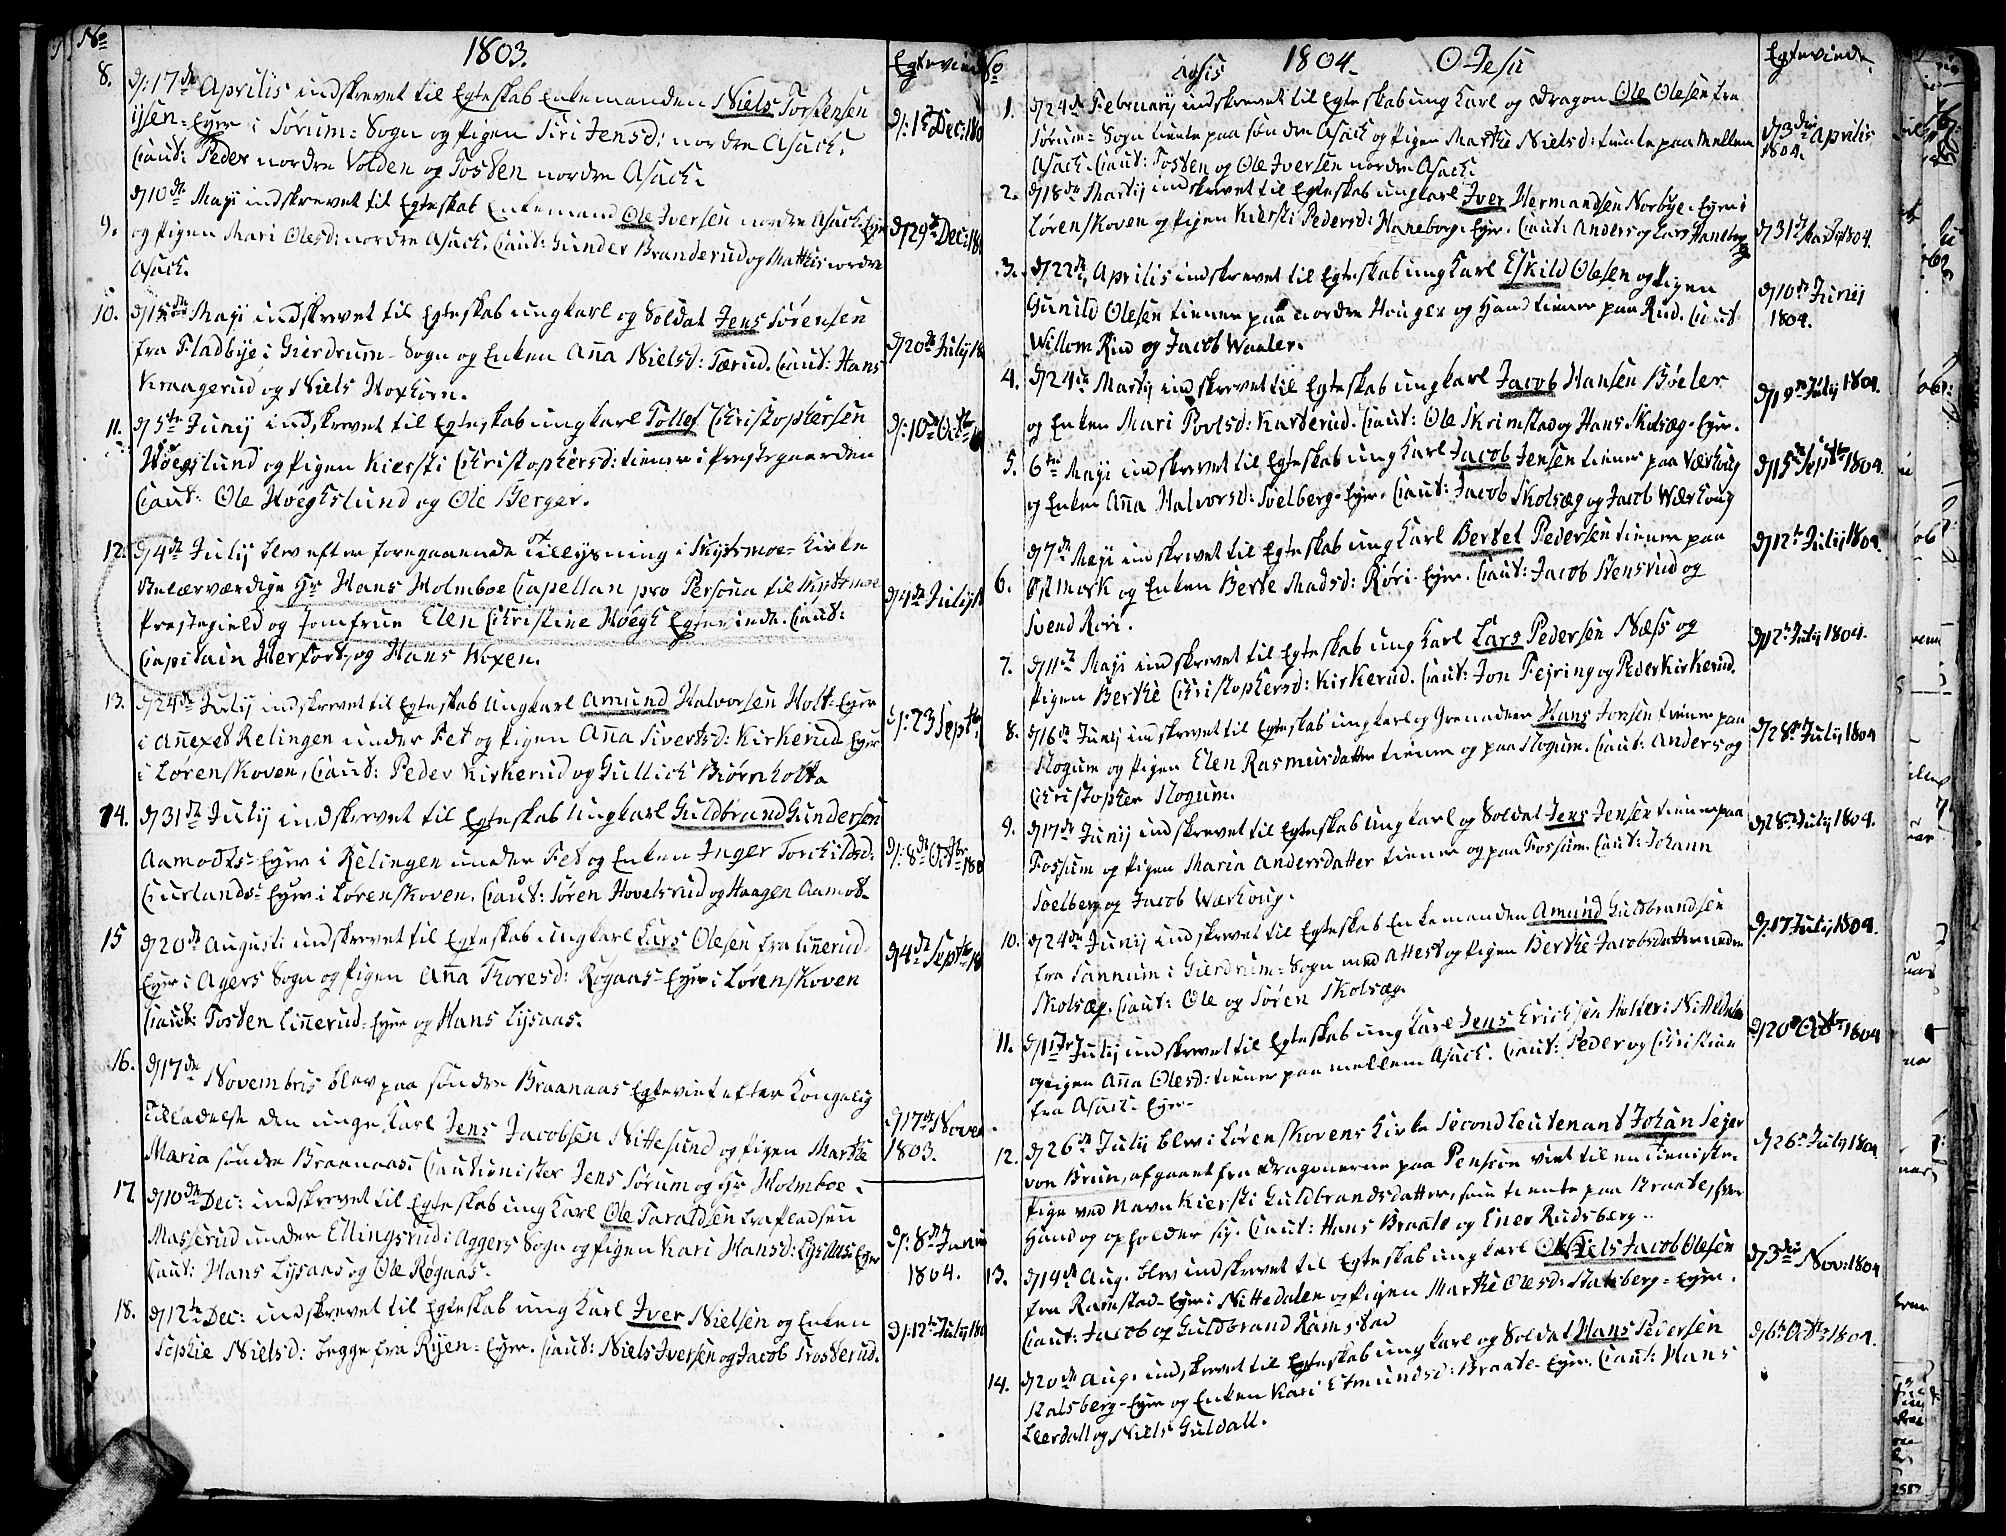 No
1803.
Egtevied
8.
d: 17de Aprilis indskrevet til Egteskab Enkemanden Niels Torstensen
ijsen-Eyer i Sørum-Sogn og Pigen Siri Jensd: nordre Asach.
Caut: Peder nordre Volden og Tosten nordre Asach.
d: 1st Dec: 180
9.
d 10de Maji indskrevet til Egteskab Enkemand Ole Iversen nordre Asach-Eyer
og Pigen Mari Olesd: nordre Asach. Caut: Gunder Branderud og Mathis nordre
Asach.
d 29de Dec: 18
10.
d 15de Maji indskrevet til Egteskab ungkarl og Soldat Jens Sørensen
fra Fladbye i Gierdrum-Sogn og Enken Aña Nielsd: Tærud. Caut: Hans
Kraagerud og Niels Hoxhorn.
d 20de Julij 18
11.
d 5te Junij indskrevet til Egteskab ungkarl Tollef Christophersen
Høegslund og Pigen Kiersti Christophersd: tiener i Prestegaarden
Caut: Ole Høegslund og Ole Berger.
d: 10de Octbr
12.
d 4de Julij blev efter foregaaende Tillysning i Skydsmoe-Kirke
Velærværdige Hr Hans Holmboe Capellan pro Persona til Skydsmoe
Prestegield og Jomfrue Elen Christine Høegh Egteviede. Caut:
Capitain Herfort og Hans Woxen.
d 4de Julij 18
13.
d 24de Julij indskrevet til Egteskab Ungkarl Amund Halvorsen Holt-Eyer
i Añexet Relingen under Fet og Pigen Aña Sivertsd: Kirkerud-Eyer
i Lørenskoven, Caut: Peder Kirkerud og Gullich Biørnholta
d: 23 Septbr
14.
d 31te Julij indskrevet til Egteskab Ungkarl Guldbrand Gundersen
Aamodts-Eyer i Relingen under Fet og Enken Inger Torchildsd:
Curlands-Eyer i Lørenskoven. Caut: Søren Hovelsrud og Haagen Aamot
d: 8de Octbr 180
15
d 20de Augusti indskrevet til Egteskab ungkarl Lars Olesen fra Liñerud-
Eyer i Agers Sogn og Pigen Aña Thoresd: Rogaas-Eyer i Lørenskoven
Caut: Tosten Liñerud-Eyer og Hans Lysaas.
d 4de Septbr 18
16.
d 17de Novembris blev paa søndre Braanaas Egteviet efter Kongelig
Tilladelse den unge Karl Jens Jacobsen Nittesund og Pigen Marthe
Maria søndre Braanaas: Cautionister Jens Sørum og Hr Holmboe
d 17de Novbr
1803.
17.
d 10de Dec: indskrevet til Egteskab ung Karl Ole Taraldsen fra Pladsen
Masserud under Ellingsrud i Aggers Sogn og Pigen Kari Hansd: Lysaas-Eyer
Caut: Hans Lysaas og Ole Rogaas.
d: 8de Junii
1804.
18.
d 12te Dec: indskrevet til Egteskab ung Karl Iver Nielsen og Enken
Sophie Nielsd: begge fra Ryen-Eyer. Caut: Niels Iversen og Jacob Trosterud.
d: 12te Julij 180
No
1804.
O Jesu
Egteviede
1.
d 24de Februarij indskrevet til Egteskab ung Karl og Dragon Ole Olesen fra
Sørum-Sogn tiente paa søndre Asach og Pigen Marthe Nielsd: tiente paa Mellem
Asach. Caut: Tosten og Ole Iversen nordre Asach.
d 3die Aprilis
1804.
2.
d 18de Martij indskrevet til Egteskab ungkarl Iver Hermandsen Norbye-Eyer i
Lørenskoven og Pigen Kiersti Pedersd: Haneborg-Eyer. Caut: Anders og Lars Haneborg
d 31te Martij 1804.
3.
d 22de Aprilis indskrevet til Egteskab ung Karl Eskild Olesen og Pigen
Gunild Olesen tiener paa nordre Houger og Hand tiener paa Rud. Caut:
Willom Rud og Jacob Waaler.
d 10de Junij
1804.
4.
d 24de Martij indskrevet til Egteskab ungkarl Jacob Hansen Bøeler
og Enken Mari Povlsd: Karterud. Caut: Ole Skrimstad og Hans Skolsæg-Eyer.
d 19de Julij 1804.
5.
6te Maji indskrevet til Egteskab ung Karl Jacob Jensen tiener paa Værhoug
og Enken Aña Halvorsd: Soelberg-Eyer. Caut: Jacob Skolsæg og Jacob Wærhoug
d 15de Septbr 1804.
6.
d 7de Maji indskrevet til Egteskab ung Karl Bertel Pedersen tiener paa
Østmork og Enken Berte Madsd: Røri-Eyer. Caut: Jacob Stensrud og
Svend Røri.
d 12te Julij 1804.
7.
d 11te Maji indskrevet til Egteskab ung Karl Lars Pedersen Næss og
Pigen Berthe Christophersd: Kirkerud. Caut: Jon Fejring og Peder Kirkerud.
d 12te Julij 1804.
8.
d 16de Junij indskrevet til Egteskab ungkarl og Grenadeer Hans Jonsen tiener paa
Slogum og Pigen Elen Rasmusdatter tiener og paa Slogum. Caut: Anders og
Christopher Slogum.
d 28de Julij 1804
9.
d 17de Junij indskrevet til Egteskab Ung Karl og Soldat Jens Jensen tiener paa
Fossum og Pigen Maria Andersdatter tiener og paa Fossum. Caut: Johann
Soelberg og Jacob Wærhoug.
d 28de Julij 1804.
10.
d 24de Junij indskrevet til Egteskab Enkemanden Amund Guldbrandsen
fra Sannum i Gierdrum-Sogn med Attest og Pigen Berthe Jacobsdatter nedre
Skolsæg. Caut: Ole og Søren Skolsæg.
d: 17 Julij 1804.
11.
d 11te Julij indskrevet til Egteskab ung Karl Jens Erichsen Holter i Nittedalen
og Pigen Aña Olesd: tiener paa mellem Asach. Caut: Peder og Christian
fra Asach-Eyer.
d 20de Octbr 1804
12.
d 26de Julij blev i Lørenskovens Kirke Second Leutenant Johan Sejer
von Brun, afgaaet fra Dragonerne paa Pension viet til en Tieniste-
Pige ved Navn Kiersti Guldbrandsdatter, som tiente paa Braate, hvor
Hand og opholder sig. Caut: Hans Braate og Ener Rudsberg.
d 26de Julij 1804
13.
d 14de Aug. blev indskrevet til Egteskab ungkarl Niels Jacob Olesen
fra Ramstad-Eyer i Nittedalen og Pigen Marthe Olesd: Stalsberg-Eyer.
Caut: Jacob og Guldbrand Ramstad
d 3die Nov: 1804
14.
d 20de Aug: indskrevet til Egteskab ung karl og Soldat Hans Pedersen
Stalsberg-Eyer og Enken Kari Edmundsd: Braate-Eyer. Caut: Hans
Leerdall og Niels Guldall.
d 6te Octbr 1804.